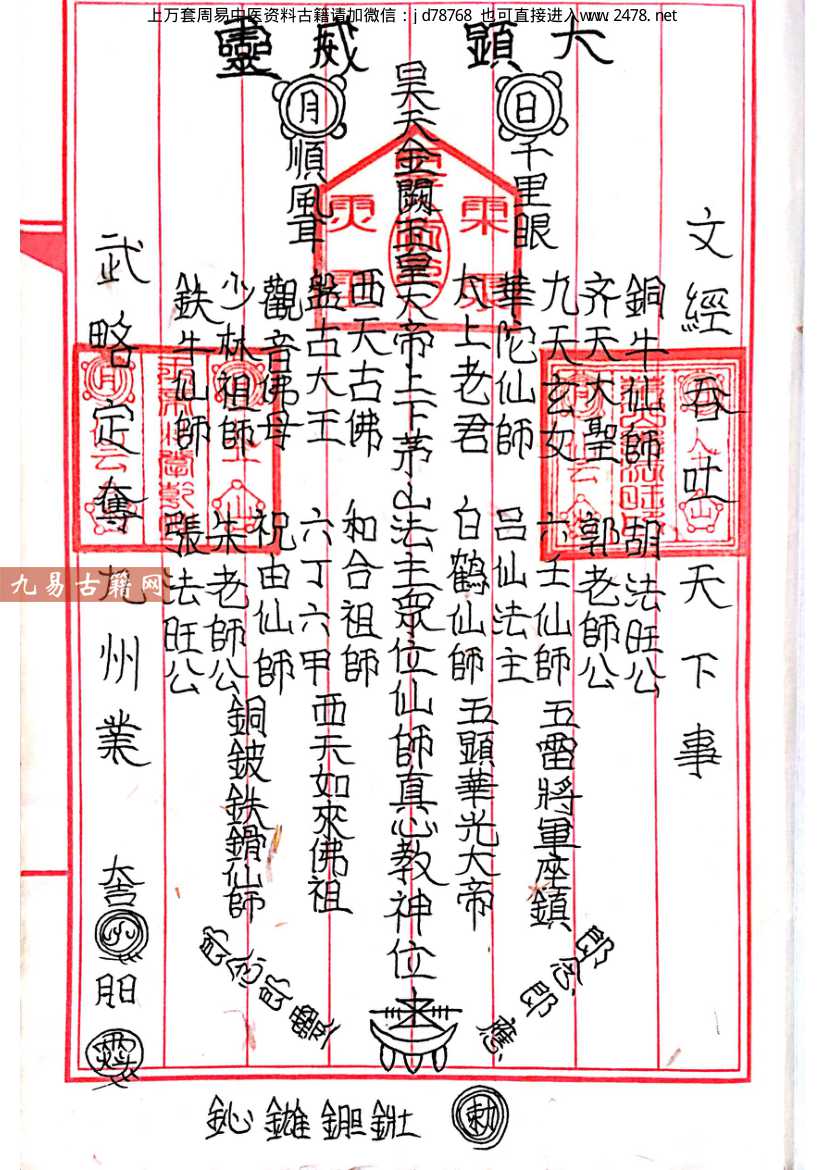 上万套周易中医资料古籍请加微信：jd78768 也可直接进入www.2478.net
大顯威靈
日
月
千里眼
順風耳
文經吞吐天下事
銅牛仙師 胡法旺公
齐天大聖 郭老師公
九天玄女 六壬仙師 五雷將軍座鎮
華陀仙師 吕仙法主
太上老君 白鶴仙師 五顯華光大帝
昊天金闕玉皇大帝上下茅山法主眾位仙師真心教神位
西天古佛 和合祖師
盤古大王 六丁六甲 西天如來佛祖
觀音佛母 祝由仙師
少林祖師 朱老師公 銅鈹鉄鎖仙師
鉄牛仙師 張法旺公
武略定奪九州業
郎念郎應
郎念郎靈
勅
九易古籍网